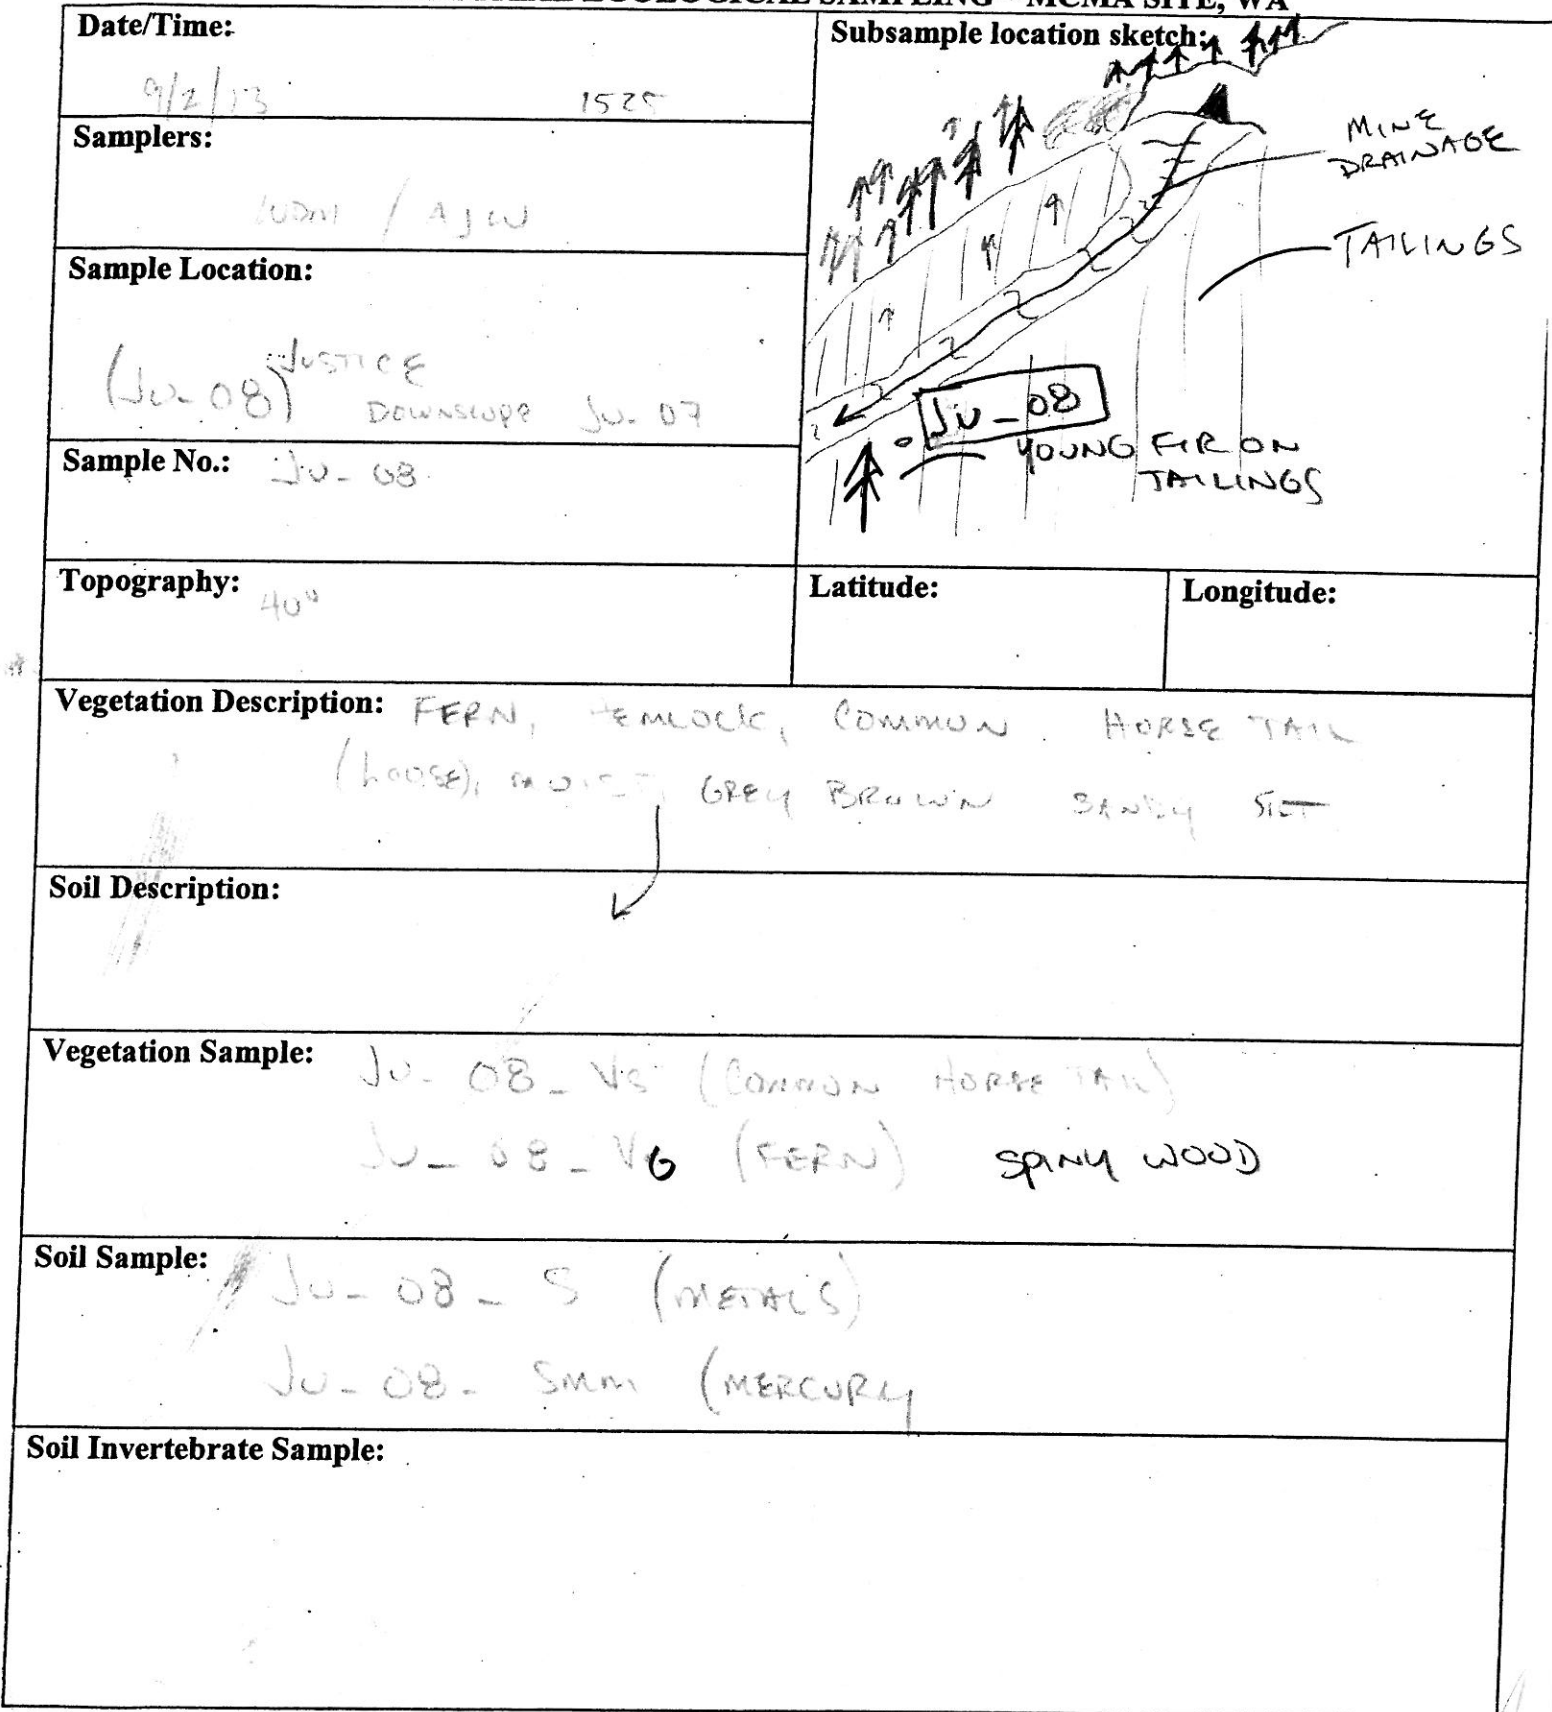 ECOLOGICAL SAMPLING – MCMA SITE, WA
Date/Time:
9/2/13 1525
Samplers:
/ AJW
Sample Location:
(JU-08) JUSTICE
DOWNSLOPE JU-07
Sample No.: JU-08
Topography: 40°
Subsample location sketch:
MINE
DRAINAGE
TAILINGS
JU-08
YOUNG FIR ON
TAILINGS
Latitude:
Longitude:
Vegetation Description: FERN, HEMLOCK, COMMON HORSE TAIL
(LOOSE), MOIST, GREY BROWN SANDY SILT
Soil Description:
Vegetation Sample: JU-08-V5 (COMMON HORSE TAIL)
JU-08-V6 (FERN) SPINY WOOD
Soil Sample: JU-08-S (METALS)
JU-08-SMM (MERCURY
Soil Invertebrate Sample: